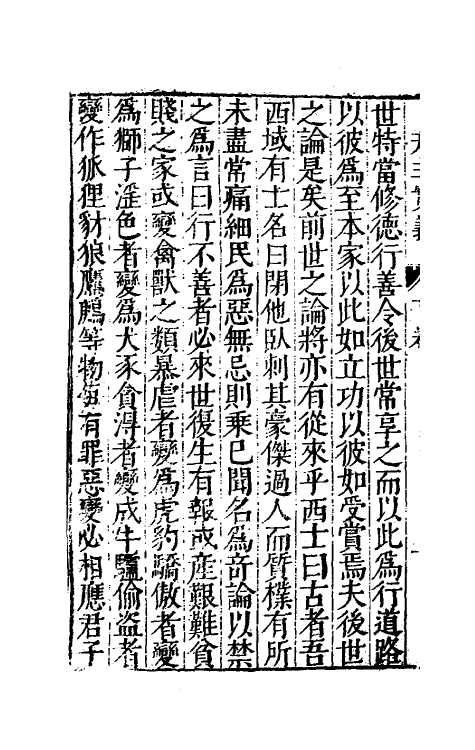 世特當修德行善令後世常享之而以此爲行道路
以彼爲至本家以此如立功以彼如受賞焉夫後世
之論是矣前世之論將亦有從來乎西士曰古者吾
西域有士名曰閉他臥刺其豪傑過人而質樸有所
未盡常痛細民爲惡無忌則乘已聞名爲奇論以禁
之爲言曰行不善者必來世復生有報或産艱難貧
賤之家或變禽獸之類暴虐者變爲虎豹驕傲者變
爲獅子淫色者變爲犬豕貪淂者變成牛驢偷盜者
變作狐狸豺狼鷹鷂等物每有罪惡變必相應君子